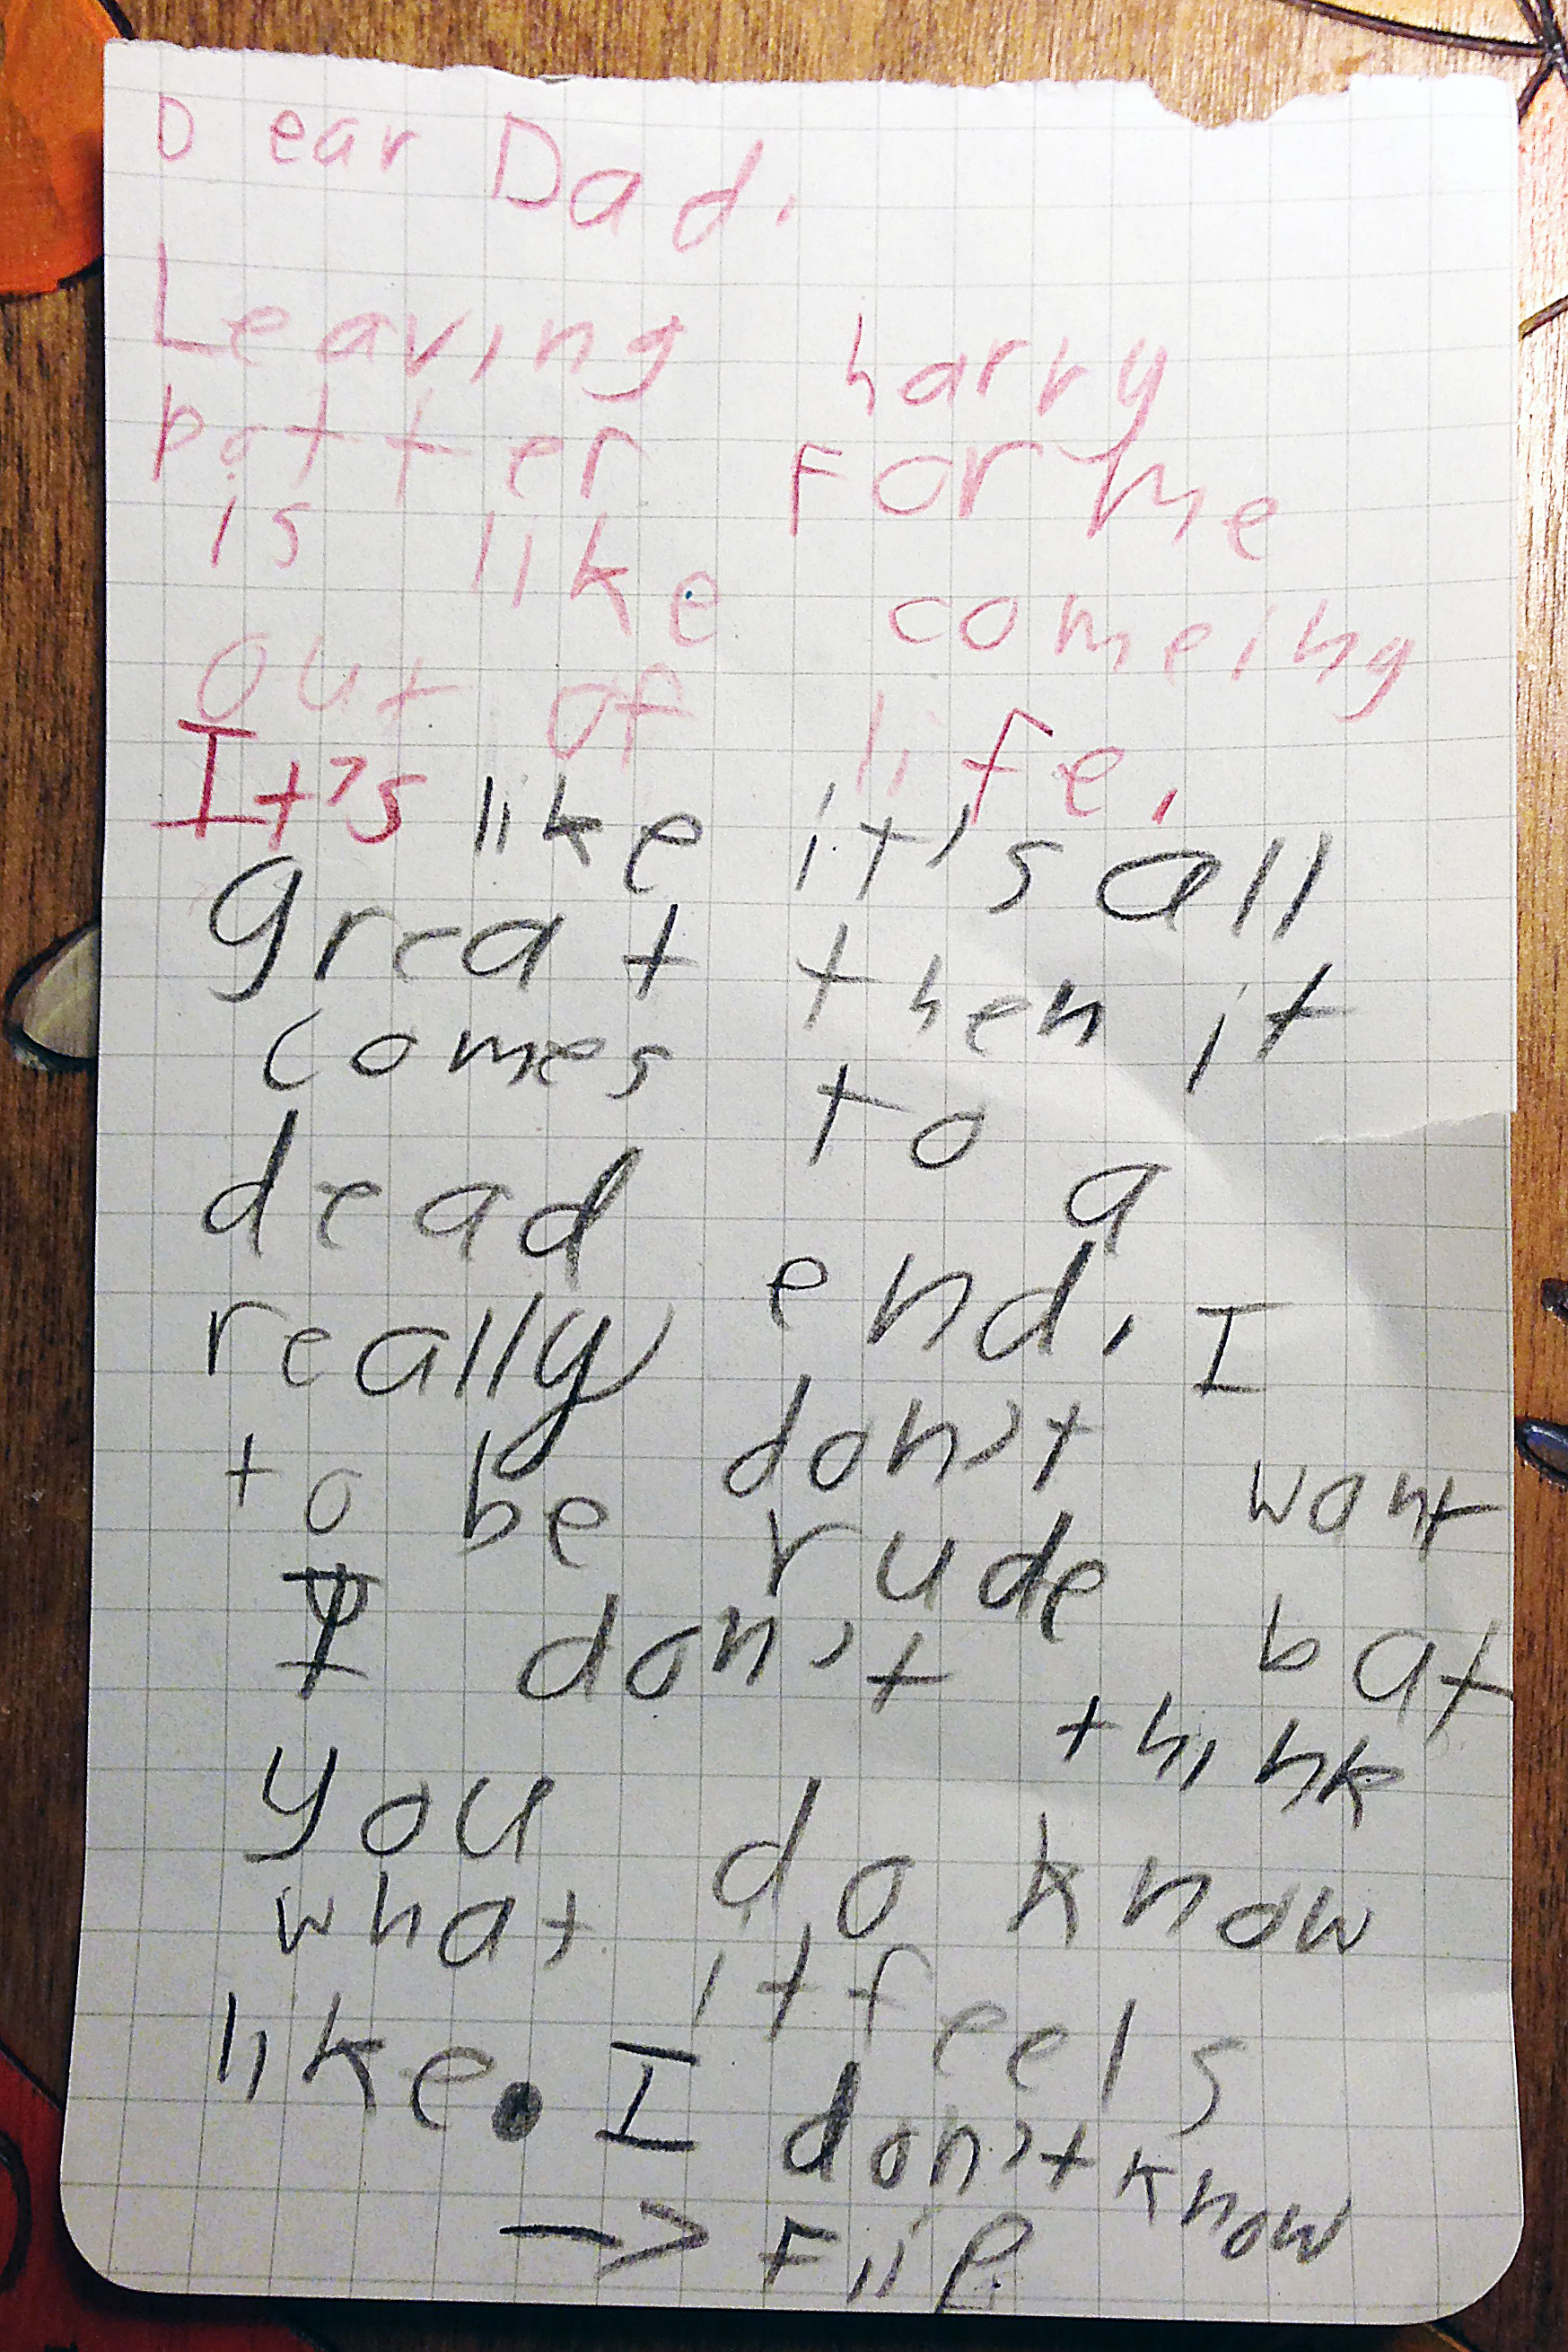 Dear Dad.
Leaving harry
potter For me
is like comeing
out of life.
It's like it's all
great then it
comes to a
dead end. I
really don't want
to be rude but
I don't think
you do know
what it feels
like. I don't know
-> Flip